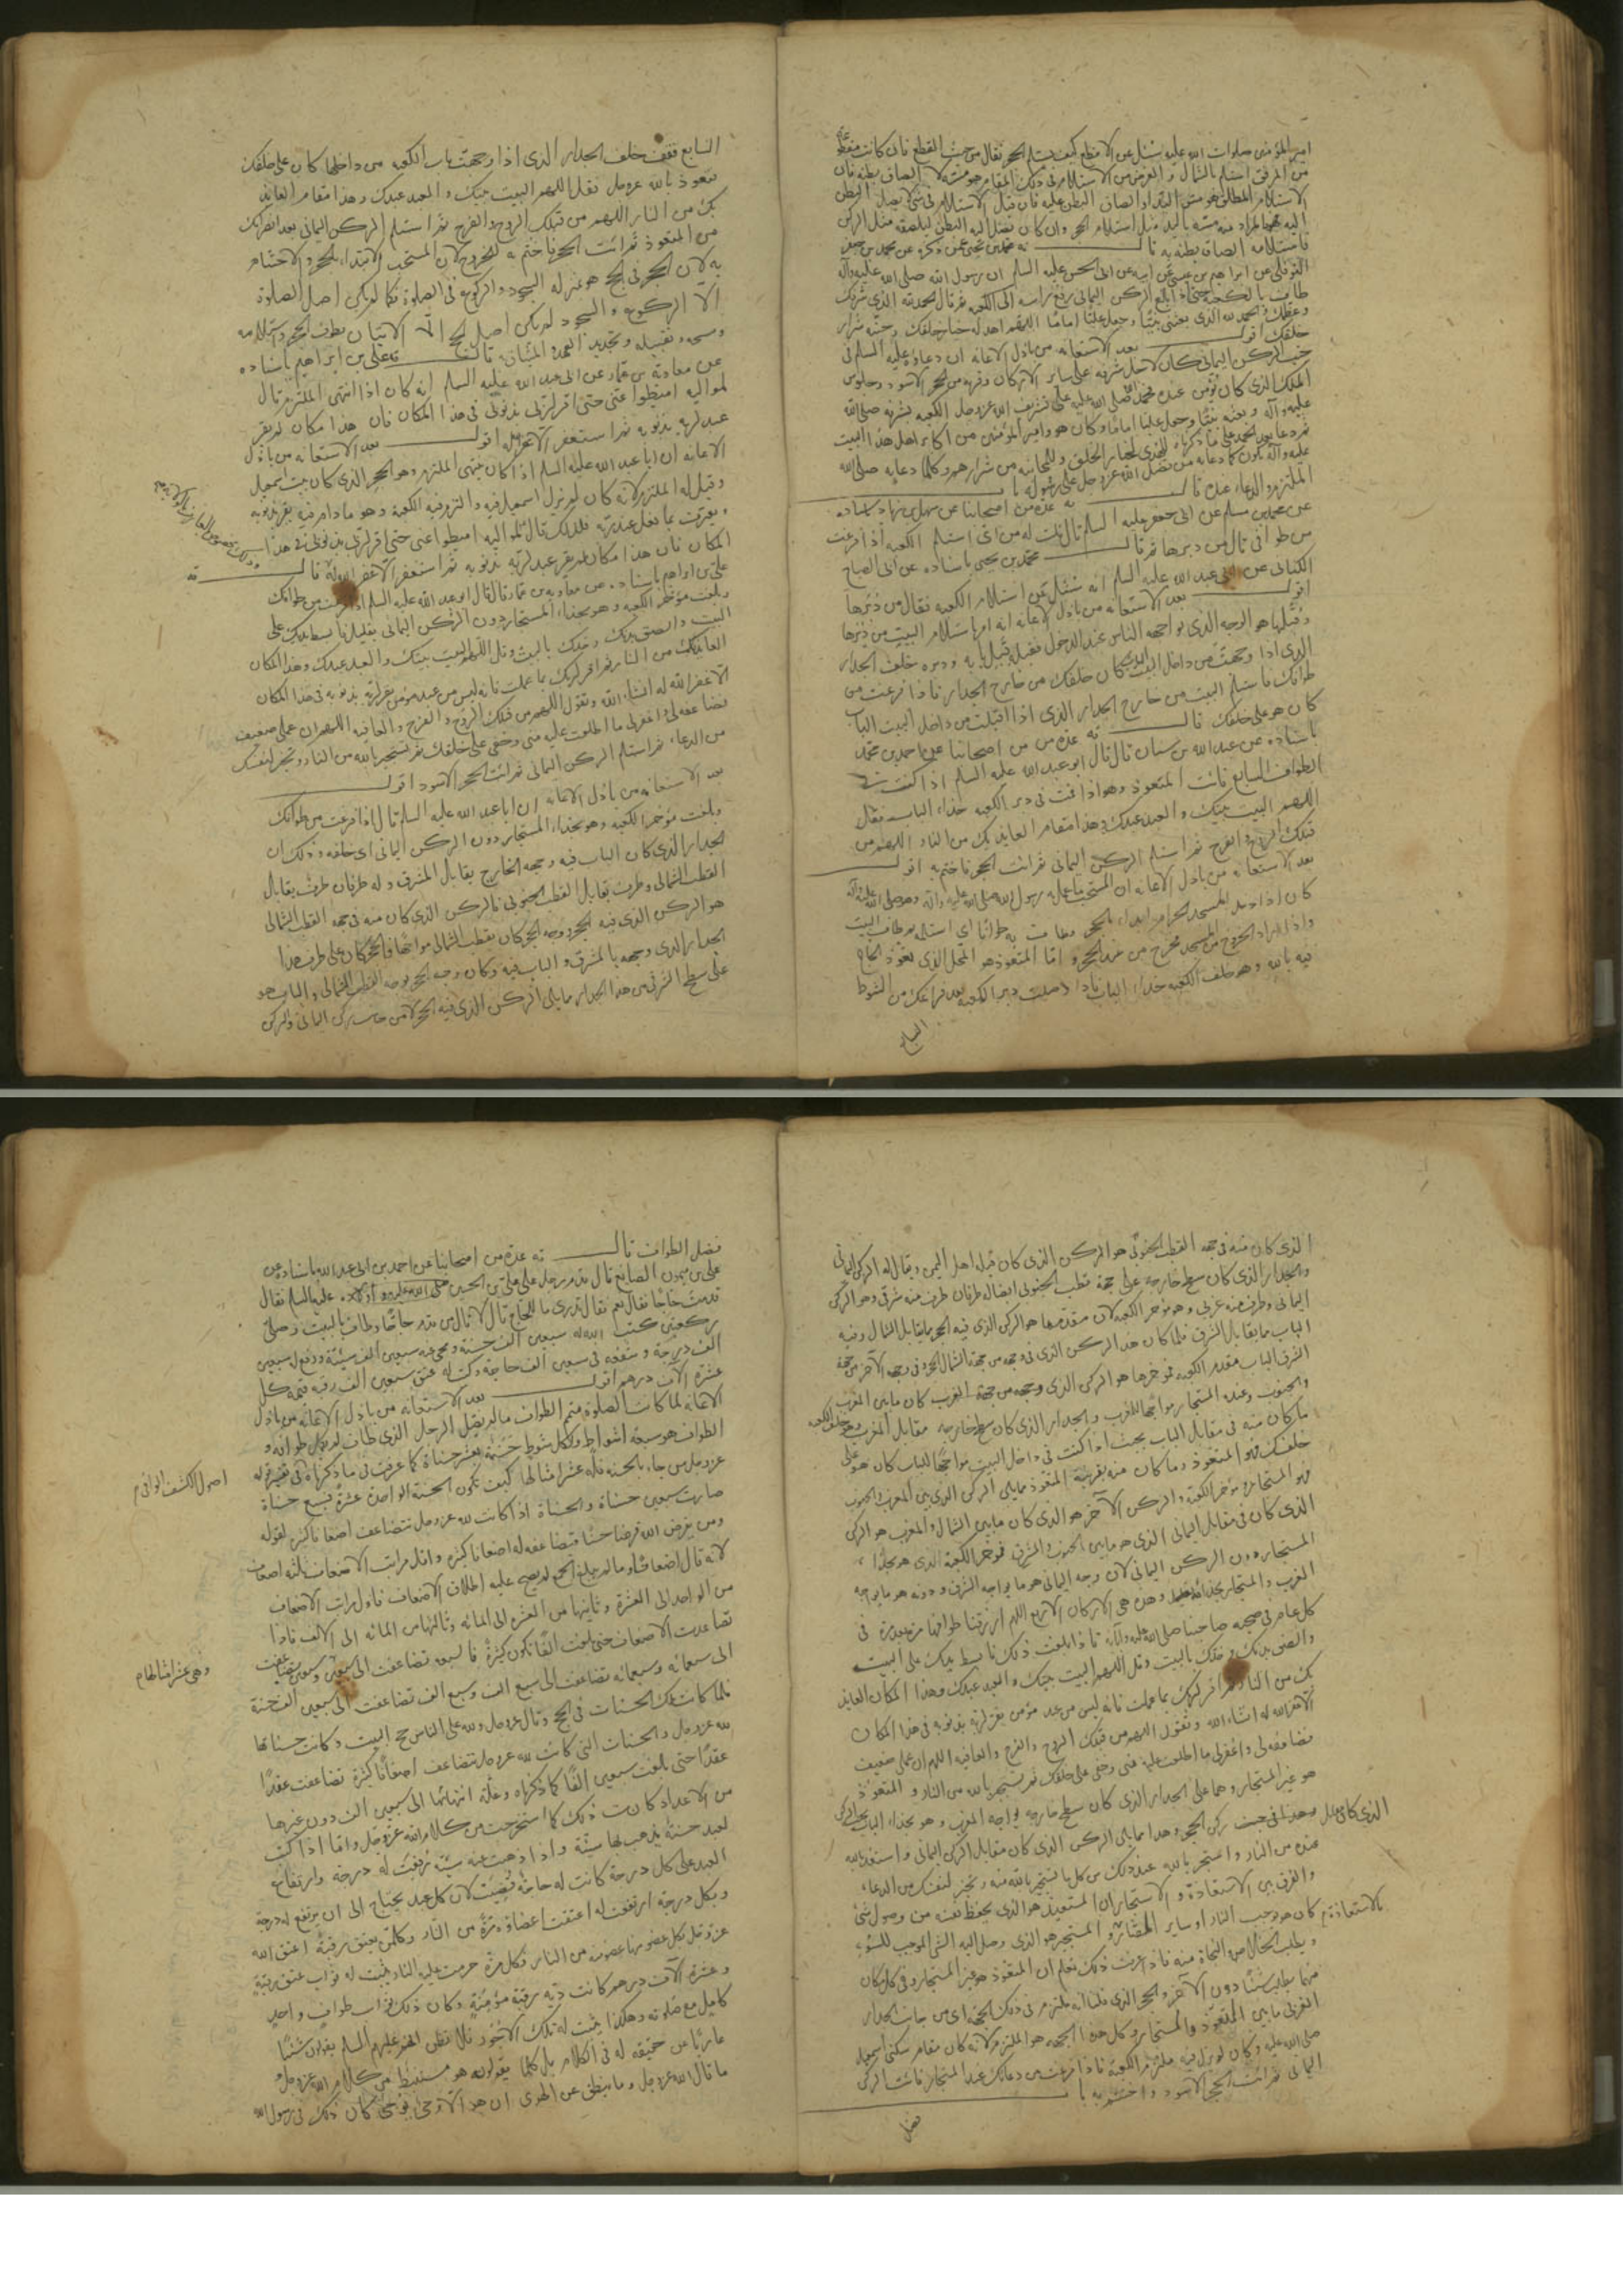 امير المؤمنين صلوات الله عليه سئل عن الاقطع كيف يستلم الحجر فقال من حيث القطع فان كانت مقطوعة
من المرفق استلم بالشمال و الغرض من الاستلام في ذلك المقام هو مسّه
الاستلام المطلق هو مسّ اليد او الصاق البطن عليه فان قيل الاستلام في شيء يصل البطن
اليه فالمراد منه مسّه باليد مثل استلام الحجر وان كان تصل اليه البطن ليلصقه مثل الركن
فاستلامه الصاق بطنه به قال محمد بن يحيى عمن ذكره عن محمد بن جعفر
النوفلي عن ابراهيم بن عيسى عن ابيه عن ابى الحسن عليه السلم ان رسول الله صلى الله عليه وآله
طاف بالكعبة حتى اذا بلغ الركن اليمانى رفع راسه الى الكعبه ثم قال الحمد لله الذى شرّفك
وعظّمك والحمد لله الذى بعثنى نبيّا وجعل عليّا اماما اللهم اهد له خيار خلقك وجنّبه شرار
خلقك اقول بعد الاستعانه من باذل الاعانه ان دعاؤه عليه السلم فى
جنب الركن اليمانى كان لاجل شرفه على ساير الاركان وقربه من الحجر الاسود وجلوس
الملك الذى كان يؤمن عنده
عليه وآله وبعثه نبيّا وجعل عليّا اماما وكان هو وامير المؤمنين من اكابر اهل هذا البيت
الملتزم والدعاء عنده قال عدة من اصحابنا عن سهل بن زياد باسناده
عن محمد بن مسلم عن ابى جعفر عليه السلم قال قلت له من اين استلم الكعبه اذا فرغت
من طوافى قال من دبرها ثم قال محمد بن يحيى باسناده عن ابى الصباح
الكنانى عن ابى عبد الله عليه السلم انه سئل عن استلام الكعبه فقال من دُبرها
اقول بعد الاستعانه من باذل الاعانه انه امر باستلام البيت من دبرها
وقُبلها هو الوجه الذى يواجهه الناس عند الدخول
الذى اذا وجهت من داخل البيت كان خلفك من خارج الجدار فاذا فرغت من
طوافك فاستلم البيت من خارج الجدار الذى اذا اقبلت من داخل البيت الباب
كان هو على خلفك قال عدة من اصحابنا عن احمد بن محمد
باسناده عن عبد الله بن سنان قال قال ابو عبد الله عليه السلم اذا كنت فى
الطواف السابع فائت المتعوذ وهو اذا قمت فى دبر الكعبه حذاء الباب فقال
اللهم البيت بيتك والعبد عبدك وهذا مقام العايذ بك من النار اللهم من
قبلك الروح والفرج ثم استلم الركن اليمانى ثم ائت الحجر فاختم به اقول
بعد الاستعانه من باذل الاعانه ان المستحب ما عمله رسول الله صلى الله عليه وآله
كان اذا دخل المسجد الحرام ابتداء بالحجر
واذا اراد الخروج من المسجد فخرج من عند الحجر و امّا المتعوذ هو المحل الذى تعوّذ الحاج
فيه بالله وهو خلف الكعبه حذاء الباب فاذا وصلت دبر الكعبه بعد فراغك من الشوط
السابع
السابع فقف خلف الجدار الذى اذا وجهت باب الكعبه من داخلها كان على خلفك
فتعوذ بالله عزوجل فقل اللهم البيت بيتك والعبد عبدك وهذا مقام العايذ
بك من النار اللهم من قبلك الروح والفرج ثم استلم الركن اليمانى بعد انصرافك
من المتعوذ ثم ائت الحجر فاختم به للخروج لان المستحب الابتداء بالحجر والاختتام
به لان الحجر فى الحج هو بمنزله السجود والركوع فى الصلوة فكما لم يكن اصل الصلوة
الا الركوع والسجود لم يكن اصل الحج الا الاتيان بطوف الحجر واستلامه
ومسحه وتقبيله وتجديد العهد والميثاق قال على بن ابراهيم باسناده
عن معاوية بن عمار عن ابى عبد الله عليه السلم انه كان اذا انتهى الملتزم قال
لمواليه اميطوا عنى حتى اقر لربى بذنوبى فى هذا المكان فان هذا مكان لم يقر
عبد لربه بذنوبه ثم استغفر الا غفر له اقول بعد الاستعانه من باذل
الاعانه ان ابا عبد الله عليه السلم اذا كان ينتهى الملتزم وهو الحجر الذى كان بيت اسمعيل
وقيل له الملتزم لانه كان لم يزل اسمعيل فيه والتزم فيه الكعبة وهو ما دام فيه يقر بذنوبه
ويعترف بما فعل عند ربّه فلذلك قال لمواليه اميطوا عنى حتى اقر لربى بذنوبى فى هذا
المكان فان هذا مكان لم يقر عبد لربّه بذنوبه ثم استغفر الا غفر الله له قال
على بن ابراهيم باسناده عن معاويه بن عمار قال قال ابو عبد الله عليه السلم اذا فرغت من طوافك
وبلغت مؤخر الكعبه وهو بحذاء المستجار دون الركن اليمانى بقليل فابسط يديك على
البيت والصق بدنك وخدك بالبيت وقل اللهم البيت بيتك والعبد عبدك وهذا المكان
العايذ بك من النار ثم اقر لربك بما عملت فانه ليس من عبد مؤمن يقر لربه بذنوبه فى هذا المكان
الا غفر الله له انشاء الله وتقول اللهم من قبلك الروح والفرج والعافيه اللهم ان عملى ضعيف
فضاعفه لى واغفر لى ما اطلعت عليه منى وخفى على خلقك ثم تستجير بالله من النار وتخير لنفسك
من الدعاء ثم استلم الركن اليمانى ثم ائت الحجر الاسود اقول
بعد الاستعانه من باذل الاعانه ان ابا عبد الله عليه السلم قال اذا فرغت من طوافك
وبلغت مؤخر الكعبه وهو بحذاء المستجار دون الركن اليمانى اى خلفه وذلك ان
الجدار الذى كان الباب فيه وجهه الخارج يقابل المشرق وله طرفان طرف يقابل
القطب الشمالى وطرف يقابل القطب الجنوبى فالركن الذى كان منه فى جهه القطب الشمالى
هو الركن الذى فيه الحجر ووجه الحجر كان بقطب الشمالى مواجها فالحجر كان على طرف هذا
الجدار الذى وجهه بالمشرق والباب فيه وكان وجه الحجر بوجه القطب الشمالى والباب هو
على سطح الشرقى من هذا الجدار ما يلى الركن الذى فيه الحجر لا من جانب ركن اليمانى والركن
الذى كان منه فى جهه القطب الجنوبى هو الركن الذى كان قبل اهل اليمن ويقال له الركن اليمانى
والجدار الذى كان سطح خارجه على جهة قطب الجنوبى ايضا له طرفان طرف منه شرقى وهو الركن
اليمانى وطرف منه غربى وهو مؤخر الكعبه لان مقدمها هو الركن الذى فيه الحجر مما يقابل الشمال وفيه
الباب مما يقابل الشرق فلما كان هذا الركن الذى فى وجهه من جهة الشمال الحجر وفى وجهه الآخر من جهة
الشرق الباب مقدم الكعبه فمؤخرها هو الركن الذى وجهه من جهة الغرب كان ما بين المغرب
والجنوب وعنده المستجار مواجها للمغرب والجدار الذى كان سطح خارجه مقابل المغرب وهو خلف الكعبه
ما كان منه فى مقابل الباب بحيث اذا كنت فى داخل البيت مواجها للباب كان هو على
خلفك فهو المتعوذ وما كان منه بقريبة المتعوذ مما يلى الركن الذى بين المغرب والجنوب
فهو المستجار ومؤخر الكعبه والركن الآخر هو الذى كان ما بين الشمال والمغرب هو الركن
الذى كان فى مقابل اليمانى الذى هو ما بين الجنوب والمشرق فمؤخر الكعبة الذى هو بحذاء
المستجار دون الركن اليمانى لان وجه اليمانى هو ما يواجه الشرق ودونه هو ما يواجه
الغرب والمستجار بحذائه وهذه هى الاركان الاربع اللهم ارزقنا طوافها مرة بعد مرة فى
كل عام فاذا بلغت ذلك فابسط يديك على البيت
والصق بدنك وخدك بالبيت وقل اللهم البيت بيتك والعبد عبدك وهذا المكان العايذ
بك من النار ثم اقر لربك بما عملت فانه ليس من عبد مؤمن يقر لربه بذنوبه فى هذا المكان
الا غفر الله له انشاء الله وتقول اللهم من قبلك الروح والفرج والعافيه اللهم ان عملى ضعيف
فضاعفه لى واغفر لى ما اطلعت عليه منى وخفى على خلقك ثم تستجير بالله من النار والمتعوذ
هو غير المستجار وهما على الجدار الذى كان سطح خارجه يواجه المغرب وهو بحذاء الباب
وهذا مما يلى الركن الذى كان مقابل الركن اليمانى واستعذ بالله
عنده من النار واستجر بالله عند ذلك من كل ما تستجير بالله منه وتخير لنفسك من الدعاء
والفرق بين الاستعاذة والاستجار ان المستعيذ هو الذى يحفظ نفسه من وصول شئ
كان هو يوجب النار او ساير المضار والمستجير هو الذى وصل اليه الشئ الموجب للسوء
ويطلب الخلاص والنجاة منه فاذا عرفت ذلك تعلم ان المتعوذ هو غير المستجار وفى كل مكان
منهما يطلب شيئا دون الآخر
الغربى ما بين المتعوذ والمستجار وكل هذا الجهه هو الملتزم لانه كان مقام سكنى اسمعيل
صلى الله عليه وكان لم يزل فيه ملتزم الكعبة فاذا فرغت من دعائك عند المستجار فائت الركن
اليمانى ثم ائت الحجر الاسود واختم به باب
فضل
فضل الطواف قال عدة من اصحابنا عن احمد بن ابى عبد الله باسناده عن
على بن ميمون الصايغ قال قدم رجل على على بن الحسين عليه السلم فقال
قدمت حاجا فقال نعم فقال تدرى ما للحاج قال لا قال من قدم حاجا وطاف بالبيت وصلى
ركعتين كتب الله له سبعين الف حسنة ومحى عنه سبعين الف سيئة ورفع له سبعين
الف درجة وشفعه فى سبعين الف حاجة وكتب له عتق سبعين الف رقبه قيمة كل
عشرة الآف درهم اقول بعد الاستعانه من باذل الاعانه من باذل
الاعانه لما كانت الصلوة متمم الطواف ما لم يصل الرجل الذى طاف لم يكمل طوافه و
الطواف هو سبعه اشواط ولكل شوط حسنة بعشر حسناة كما عرفت فى ما ذكرناه فى تفسير قوله
عزوجل من جاء بالحسنه فله عشر امثالها كيف تكون الحسنة الواحدة عشرة فسبع حسناة
اصول الكشف الوافى م
صارت سبعين حسناة والحسناة اذا كانت لله عزوجل تتضاعف اضعافا كثيرة لقوله
ومن يقرض الله قرضا حسنا فيضاعفه له اضعافا كثيرة واقل مراتب الاضعاف ثلثه اضعاف
لانه قال اضعافا وما لم يبلغ الجمع لم يصح عليه اطلاق الاضعاف فاول مراتب الاضعاف
من الواحد الى العشرة وثانيها من العشره الى المائه وثالثها من المائه الى الالف فاذا
تصاعدت الاضعاف حتى بلغت الفا تكون كثيرة فالسبعه تضاعفت الى سبعين وسبعين تضاعفت
وهى عشر امثالها م
الى سبعمائه وسبعمائه تضاعفت الى سبع الف وسبع الف تضاعفت الى سبعين الف حسنة
فلما كانت تلك الحسنات فى الحج وقال عزوجل ولله على الناس حج البيت وكانت حسناتها
لله عزوجل والحسنات التى كانت لله عزوجل تتضاعف اضعافا كثيرة تضاعفت عقدا
عقدا حتى بلغت سبعين الفا كما ذكرناه وعلّة انتهائها الى سبعين الف دون غيرها
من الاعداد كانت ذلك كما استخرجت من كلام الله عزوجل واما اذا كتبت
لعبد حسنة يذهب بها سيّئة واذا ذهبت عنه سيئة رُفِعت له درجة وارتفاع
العبد على كل درجة كانت له حاجة قُضِيَت لان كل عبد يحتاج الى ان يرتفع له درجة
وبكل درجة ارتفعت له اعتقت اعضاؤه مرّة من النار وكلمن يعتق رقبة اعتق الله
عزوجل بكل عضو منها عضو منه من النار فكل مرة حرمت عليه النار يثبت له ثواب عتق رقبة
وعشرة الآف درهم كانت دية رقبة مؤمنة وكان ذلك ثواب طواف واحد
كامل مع صلوته وهكذا يثبت له تلك الاجُور فلا تظن انهم عليهم السلم يقولون شيئا
عاريا عن حقيقه له فى الكلام بل كلما يقولون هو مستنبط من كلام الله عزوجل
ما قال الله عزوجل وما ينطق عن الهوى ان هو الا وحى يوحى كان ذلك فى رسول الله